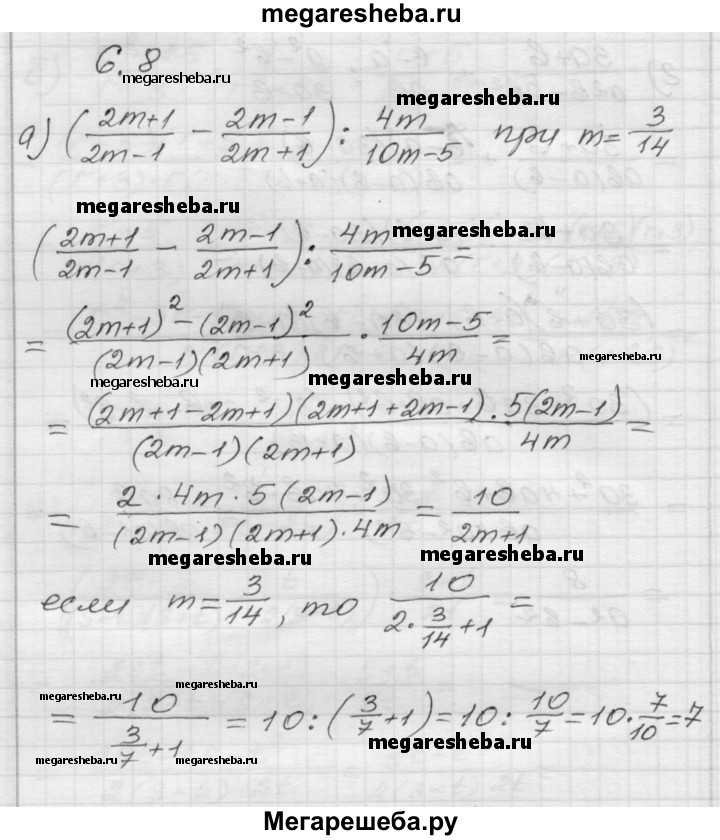 megaresheba.ru
6.8
megaresheba.ru
megaresheba.ru
а) ((2m+1)/(2m-1) - (2m-1)/(2m+1)) : 4m/(10m-5) при m=3/14
megaresheba.ru
((2m+1)/(2m-1) - (2m-1)/(2m+1)) : 4m/(10m-5) =
megaresheba.ru
= ((2m+1)²-(2m-1)²)/((2m-1)(2m+1)) · (10m-5)/4m =
megaresheba.ru
megaresheba.ru
megaresheba.ru
= ((2m+1-2m+1)(2m+1+2m-1))/((2m-1)(2m+1)) · 5(2m-1)/4m =
= (2·4m·5(2m-1))/((2m-1)(2m+1)·4m) = 10/(2m+1)
megaresheba.ru
megaresheba.ru
если m=3/14, то 10/(2·3/14+1) =
megaresheba.ru
megaresheba.ru
= 10/(3/7+1) = 10:(3/7+1)=10:10/7=10·7/10=7
megaresheba.ru
megaresheba.ru
megaresheba.ru
Мегарешеба.ру